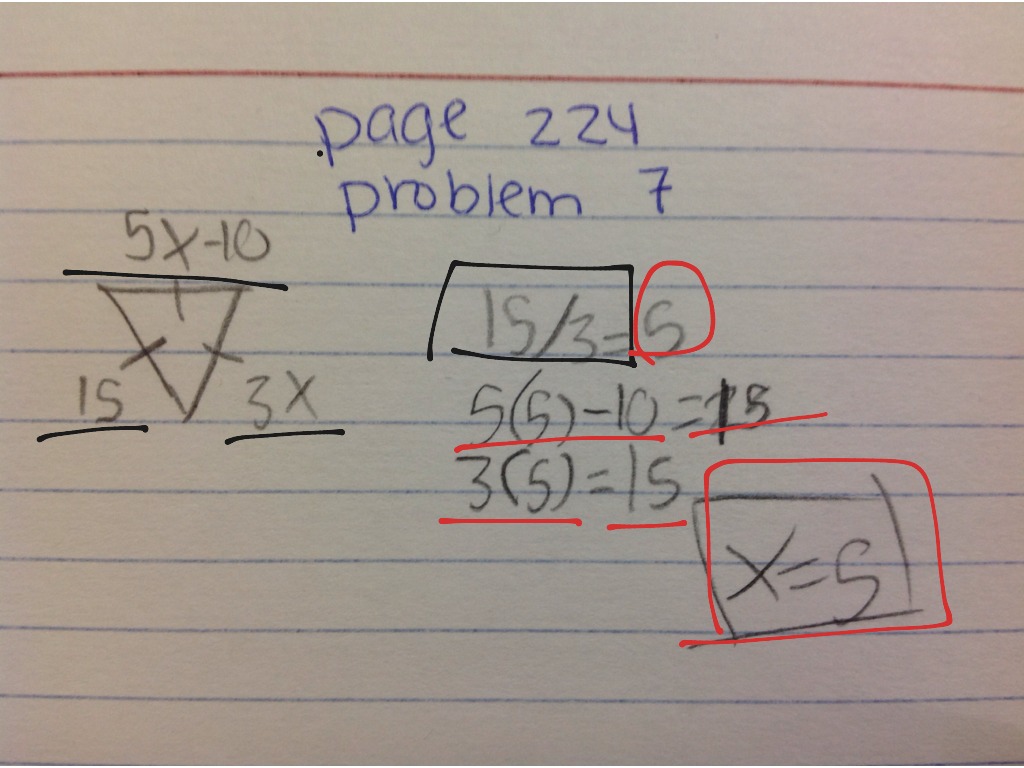 page 224
problem 7
5x-10
15
3x
15/3=5
5(5)-10=15
3(5)=15
x=5